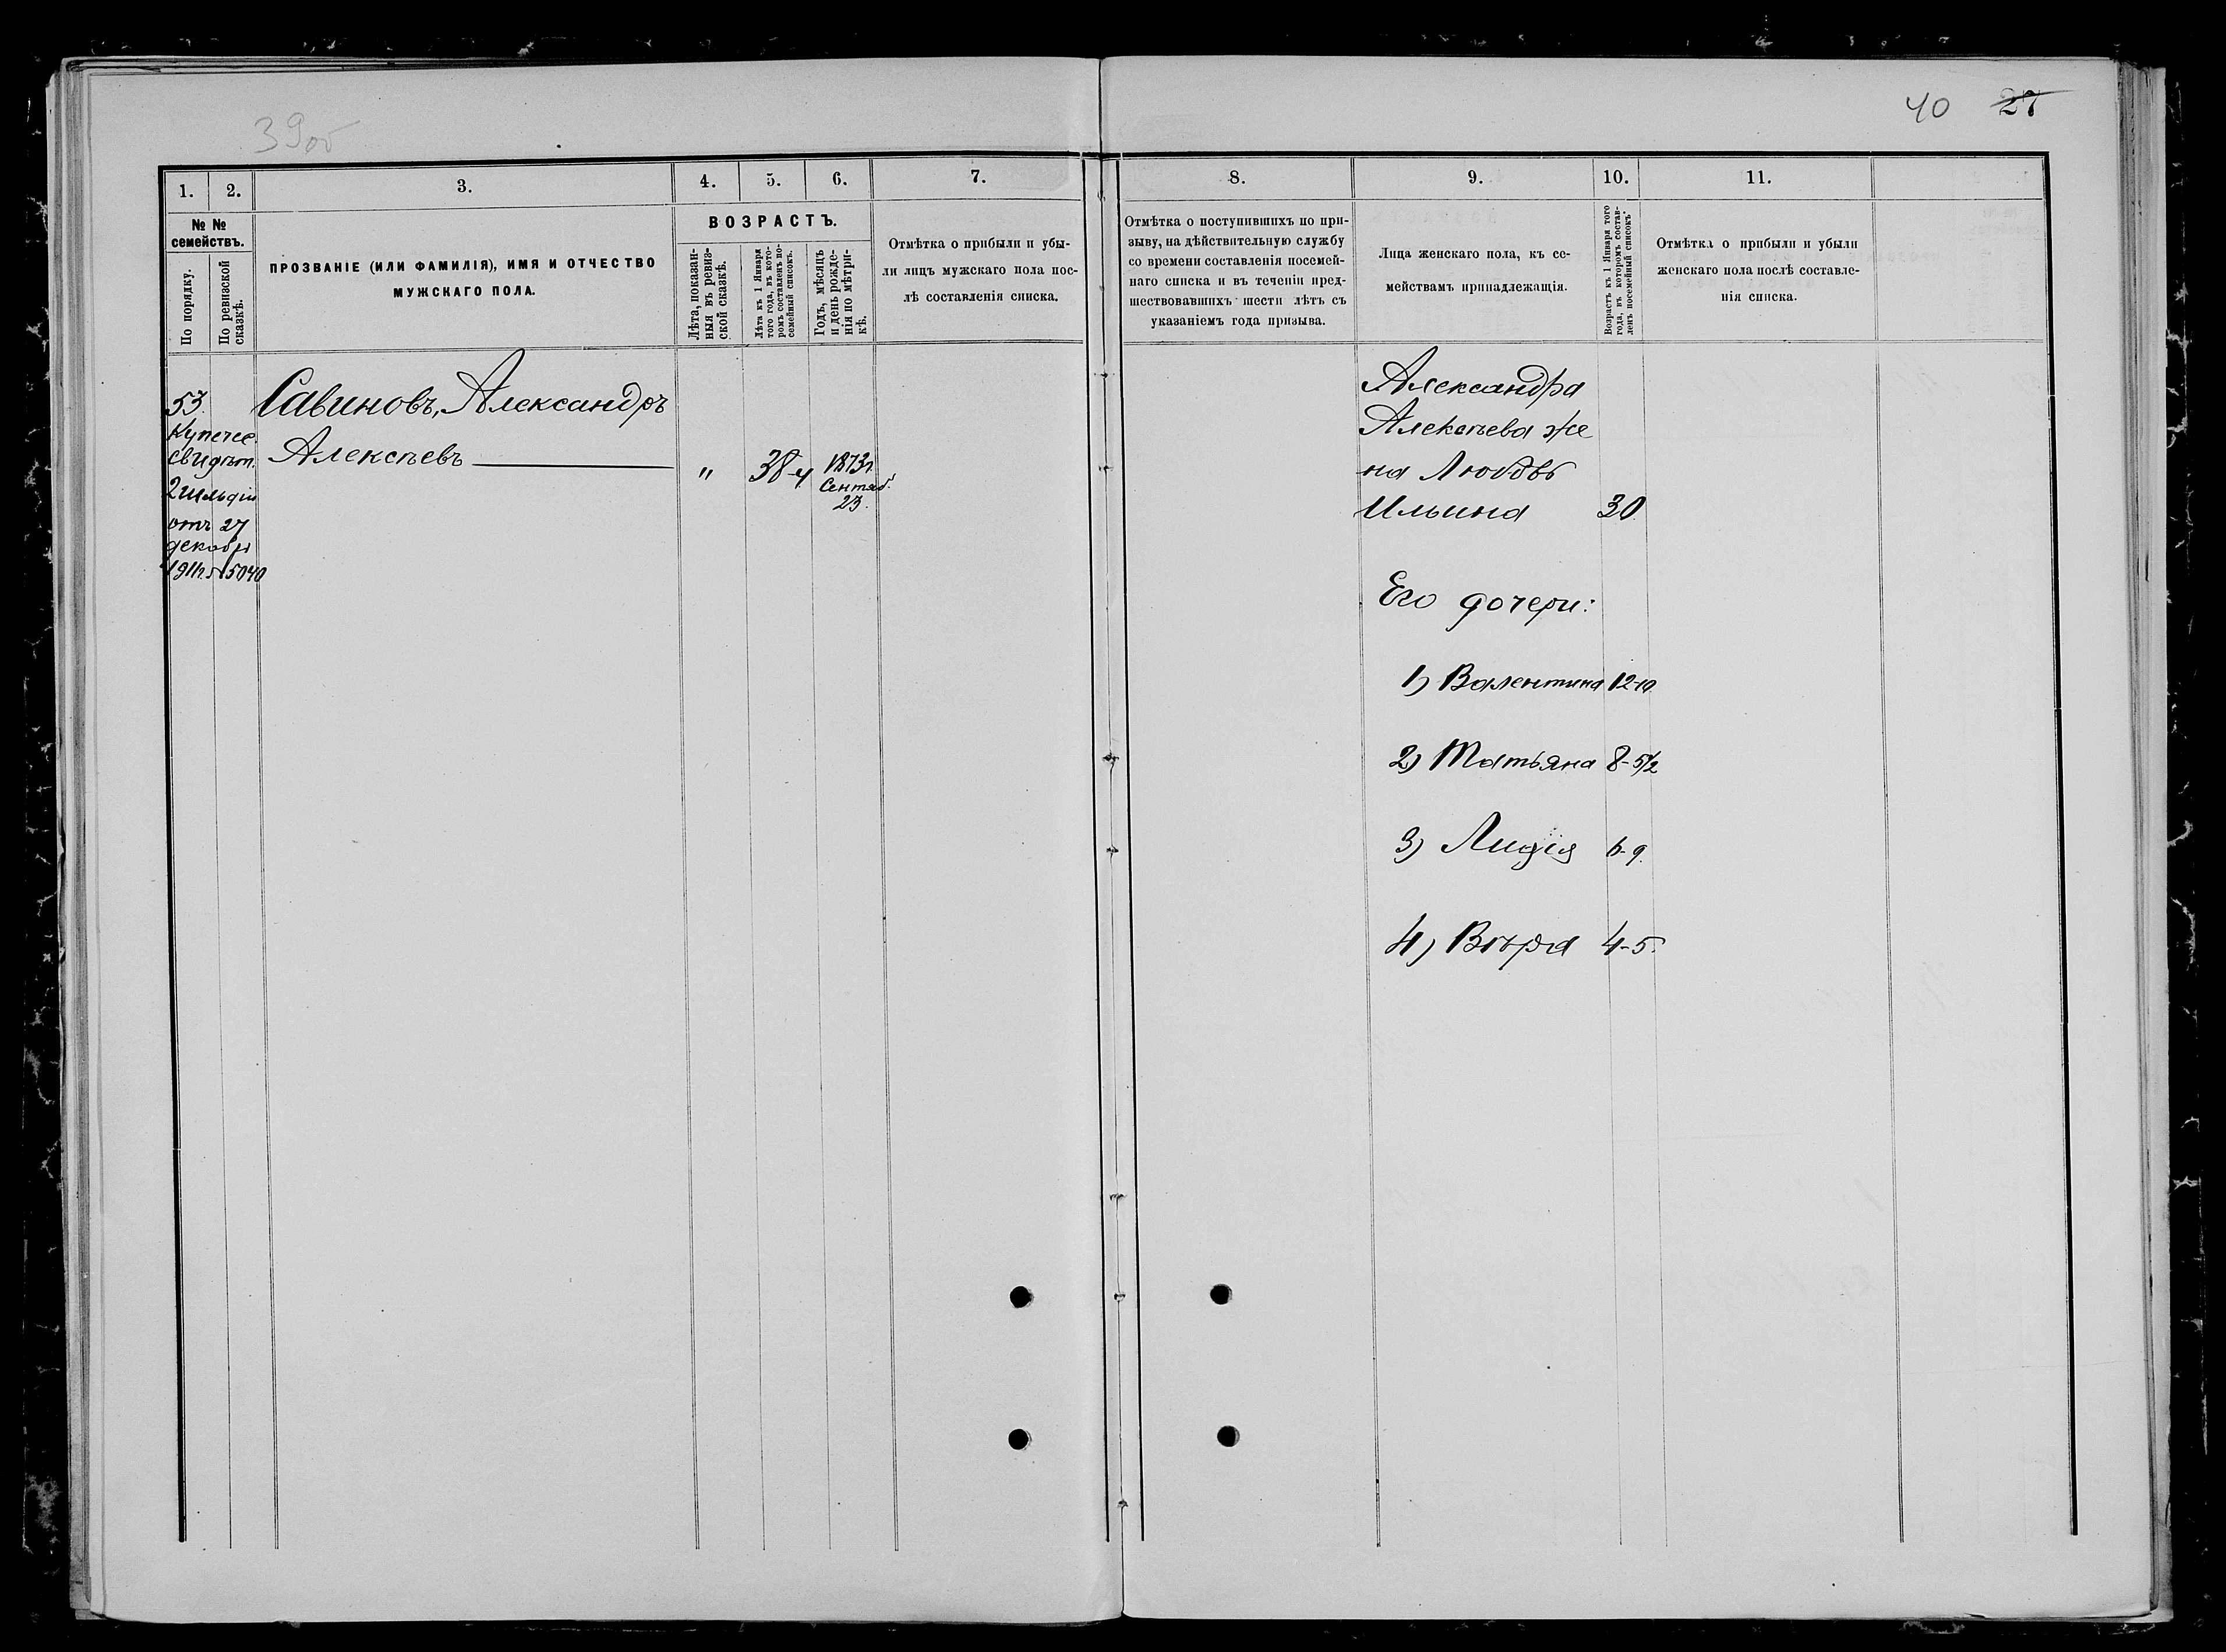 39об
40 27
1. 2. 3. 4. 5. 6. 7.
№ №
семействъ.
По порядку.
По ревизской
сказкѣ.
ПРОЗВАНІЕ (ИЛИ ФАМИЛІЯ), ИМЯ И ОТЧЕСТВО
МУЖСКАГО ПОЛА.
ВОЗРАСТЪ.
Лѣта, показан-
ныя въ ревиз-
ской сказкѣ.
Лѣта къ 1 Января
того года, въ кото-
ромъ составленъ по-
семейный списокъ.
Годъ, мѣсяцъ
и день рожде-
нія по мѣтри-
кѣ.
Отмѣтка о прибыли и убы-
ли лицъ мужскаго пола пос-
лѣ составленія списка.
53.
Купечес.
свидѣт.
2 гильдіи
отъ 27
декабря
1911г. № 5040
Савиновъ, Александръ
Алексѣевъ
" 38-4 1873г.
Сентяб.
23.
8. 9. 10. 11.
Отмѣтка о поступившихъ по при-
зыву, на дѣйствительную службу
со времени составленія посемей-
наго списка и въ теченіи пред-
шествовавшихъ шести лѣтъ съ
указаніемъ года призыва.
Лица женскаго пола, къ се-
мействамъ принадлежащія.
Возрастъ къ 1 Января того
года, въ которомъ состав-
ленъ посемейный списокъ.
Отмѣтка о прибыли и убыли
женскаго пола послѣ составле-
нія списка.
Александра
Алексѣева же
на Любовь
Ильина 30
Его дочери:
1) Валентина 12-10
2) Татьяна 8-5½
3) Лидія 6-9.
4) Вѣра 4-5.